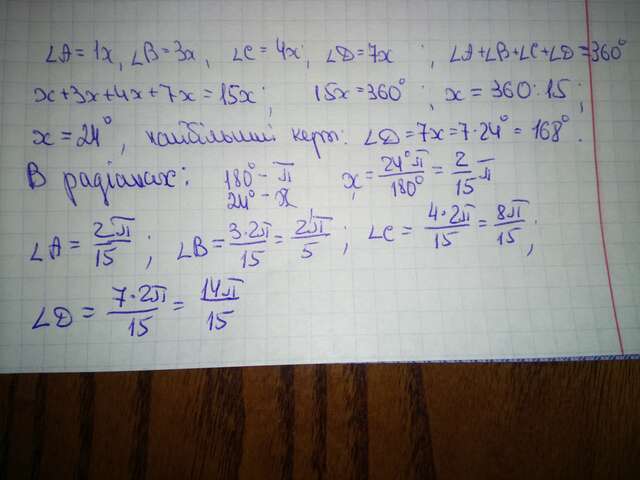 ∠A = 1x, ∠B = 3x, ∠C = 4x; ∠D = 7x ; ∠A+∠B+∠C+∠D=360°
x+3x+4x+7x=15x; 15x=360°; x=360:15;
x=24°, найбільший : ∠D=7x=7·24°=168°.
В радіанах: 180° – π x = 24°π/180° = 2/15 π
24° – x
∠A = 2π/15; ∠B = 3·2π/15 = 2π/5; ∠C = 4·2π/15 = 8π/15;
∠D = 7·2π/15 = 14π/15